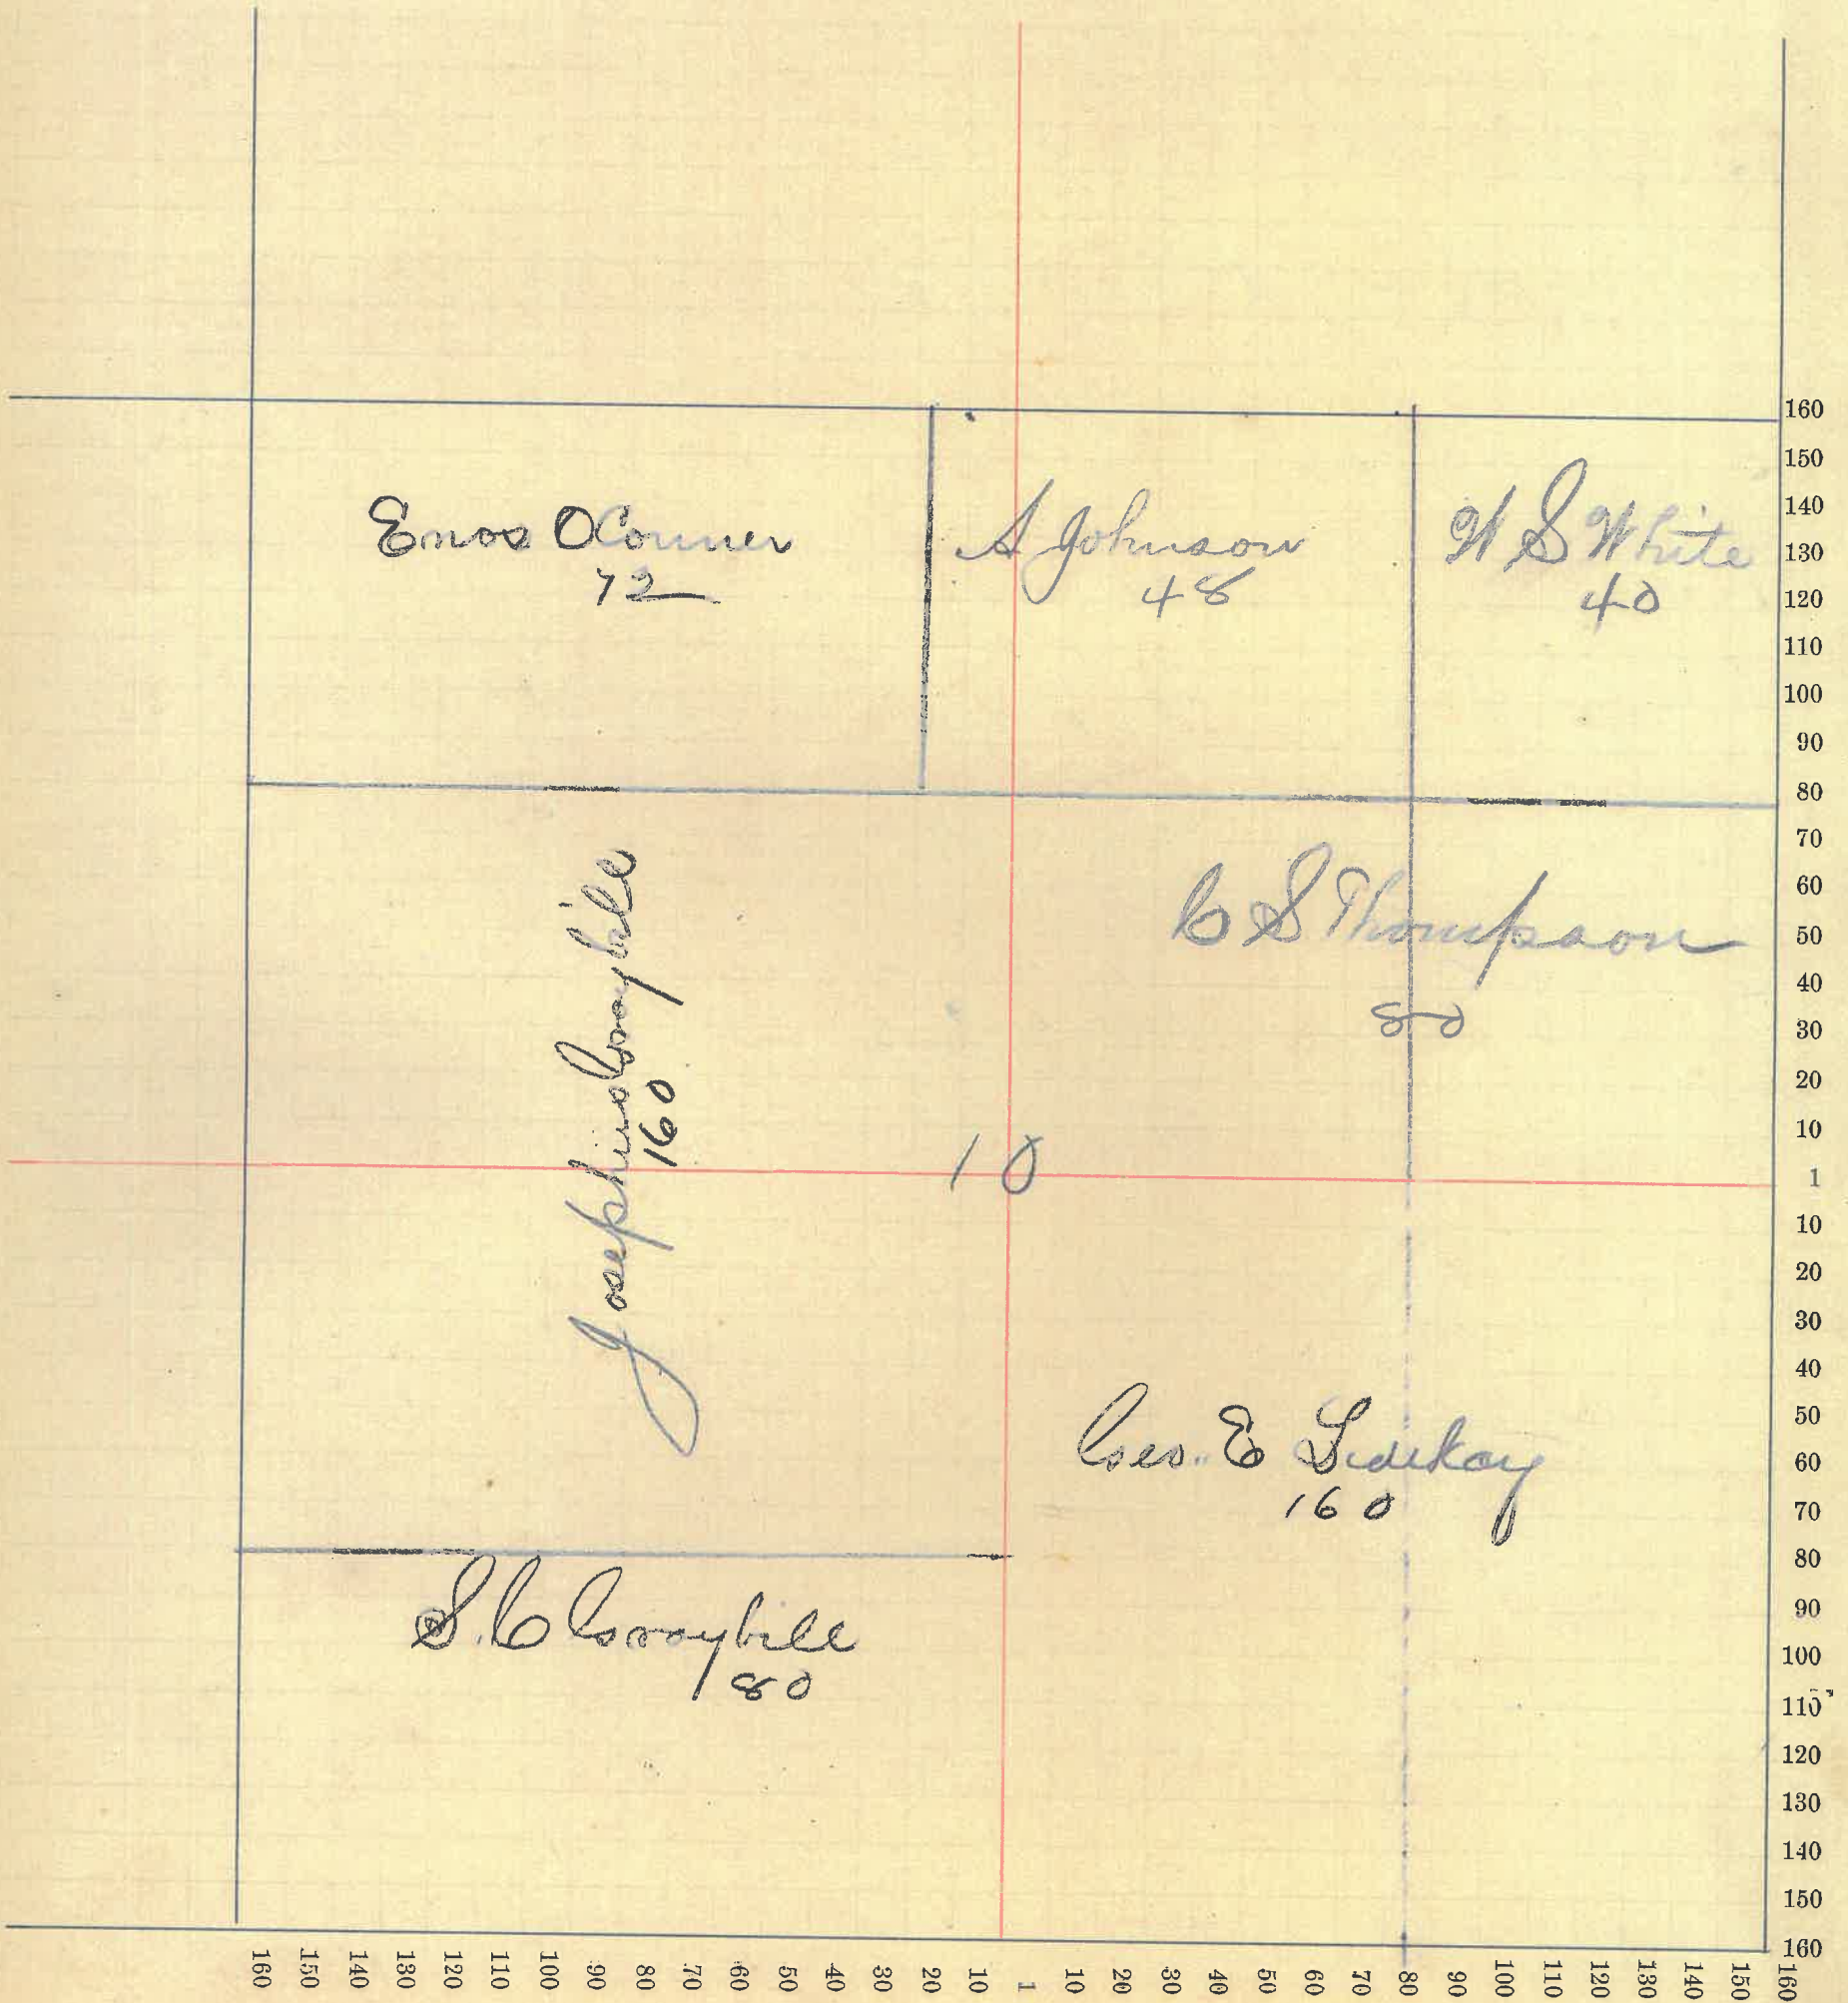 Enos OConner
72
A Johnson
48
W S White
40
C S Thompson
80
Josephine Graybill
160
10
Geo. E
160
S. C Graybill
80
160
150
140
130
120
110
100
90
80
70
60
50
40
30
20
10
1
10
20
30
40
50
60
70
80
90
100
110
120
130
140
150
160
160 150 140 130 120 110 100 90 80 70 60 50 40 30 20 10 1 10 20 30 40 50 60 70 80 90 100 110 120 130 140 150 160